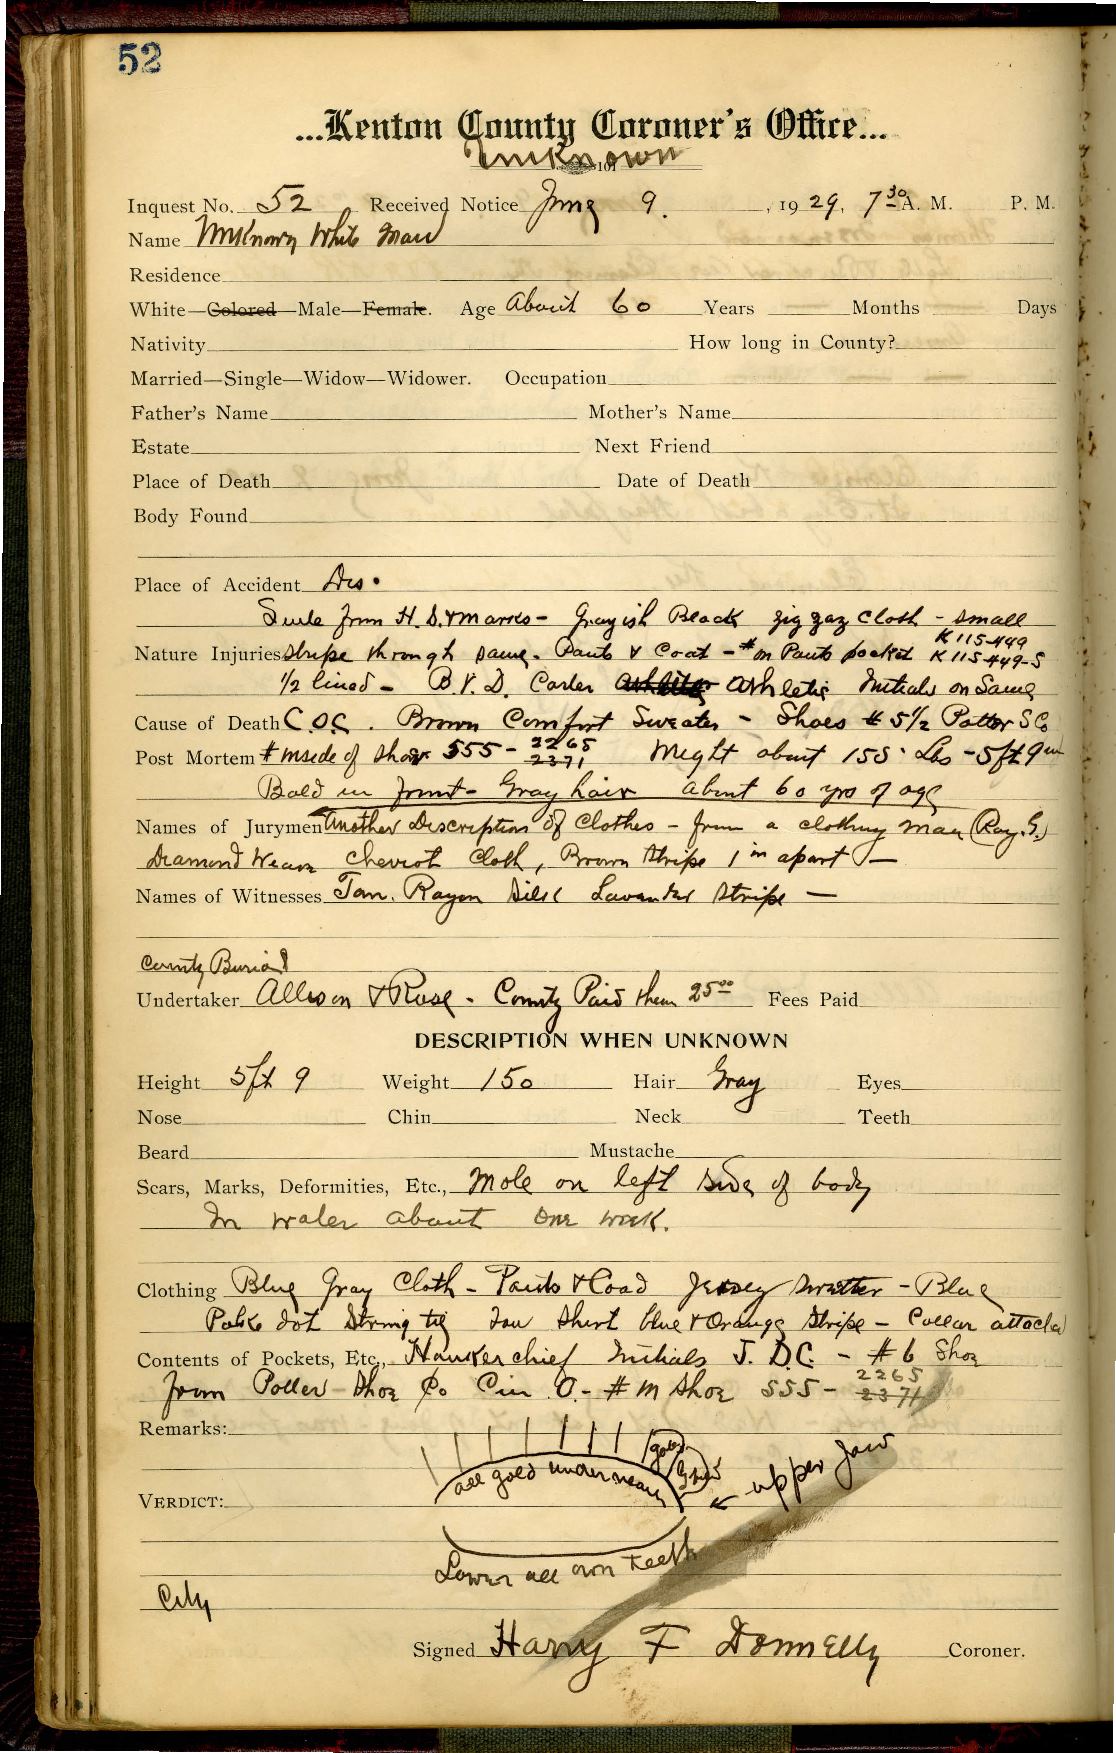 52
...Kenton County Coroner's Office...
Unknown
101
Inquest No. 52 Received Notice June 9. , 1929, 7 30 A. M. P. M.
Name Unknown White Man
Residence
White—Colored—Male—Female. Age About 60 Years Months Days
Nativity How long in County?
Married—Single—Widow—Widower. Occupation
Father's Name Mother's Name
Estate Next Friend
Place of Death Date of Death
Body Found
Place of Accident
from H. S. & Marks - Grayish Black zig zag cloth - small
K 115-449
Nature Injuries stripe through same. Pants & Coat - # in Pants pocket K 115-449-5
1/2 lined - B.V.D. Athletic Initials on Same
Cause of Death C.O.C. Brown Comfort Sweater - Shoes # 5 1/2 Potter S Co
Post Mortem # inside of shoe 555 - 2265 2371 Weight about 155 Lbs - 5ft 9 in
Bald in front - Gray hair about 60 yrs of age
Names of Jurymen Another Description of clothes - from a clothing man (Ray. S.)
Diamond Weave cheviot cloth, Brown Stripe 1 in apart —
Names of Witnesses Tan. Rayon Silk Lavander Stripe —
County Burial
Undertaker Allison & Rose - County Paid them 25 00 Fees Paid
DESCRIPTION WHEN UNKNOWN
Height 5ft 9 Weight 150 Hair Gray Eyes
Nose Chin Neck Teeth
Beard Mustache
Scars, Marks, Deformities, Etc., Mole on left side of body
In water about one week.
Clothing Blue Gray Cloth - Pants & Coad Jersey swetter - Blue
Polka dot String tie Tan Shirt blue & Orange Stripe - Collar attached
Contents of Pockets, Etc., Hankerchief Initials J. D.C. - # 6 Shoe
from Potter Shoe Co Cin. O. - # in Shoe 555 - 2265 2371
Remarks:
gold
all gold underneath
← upper jaw
VERDICT:
Lower all own teeth
City
Signed Harry F Donnelly Coroner.